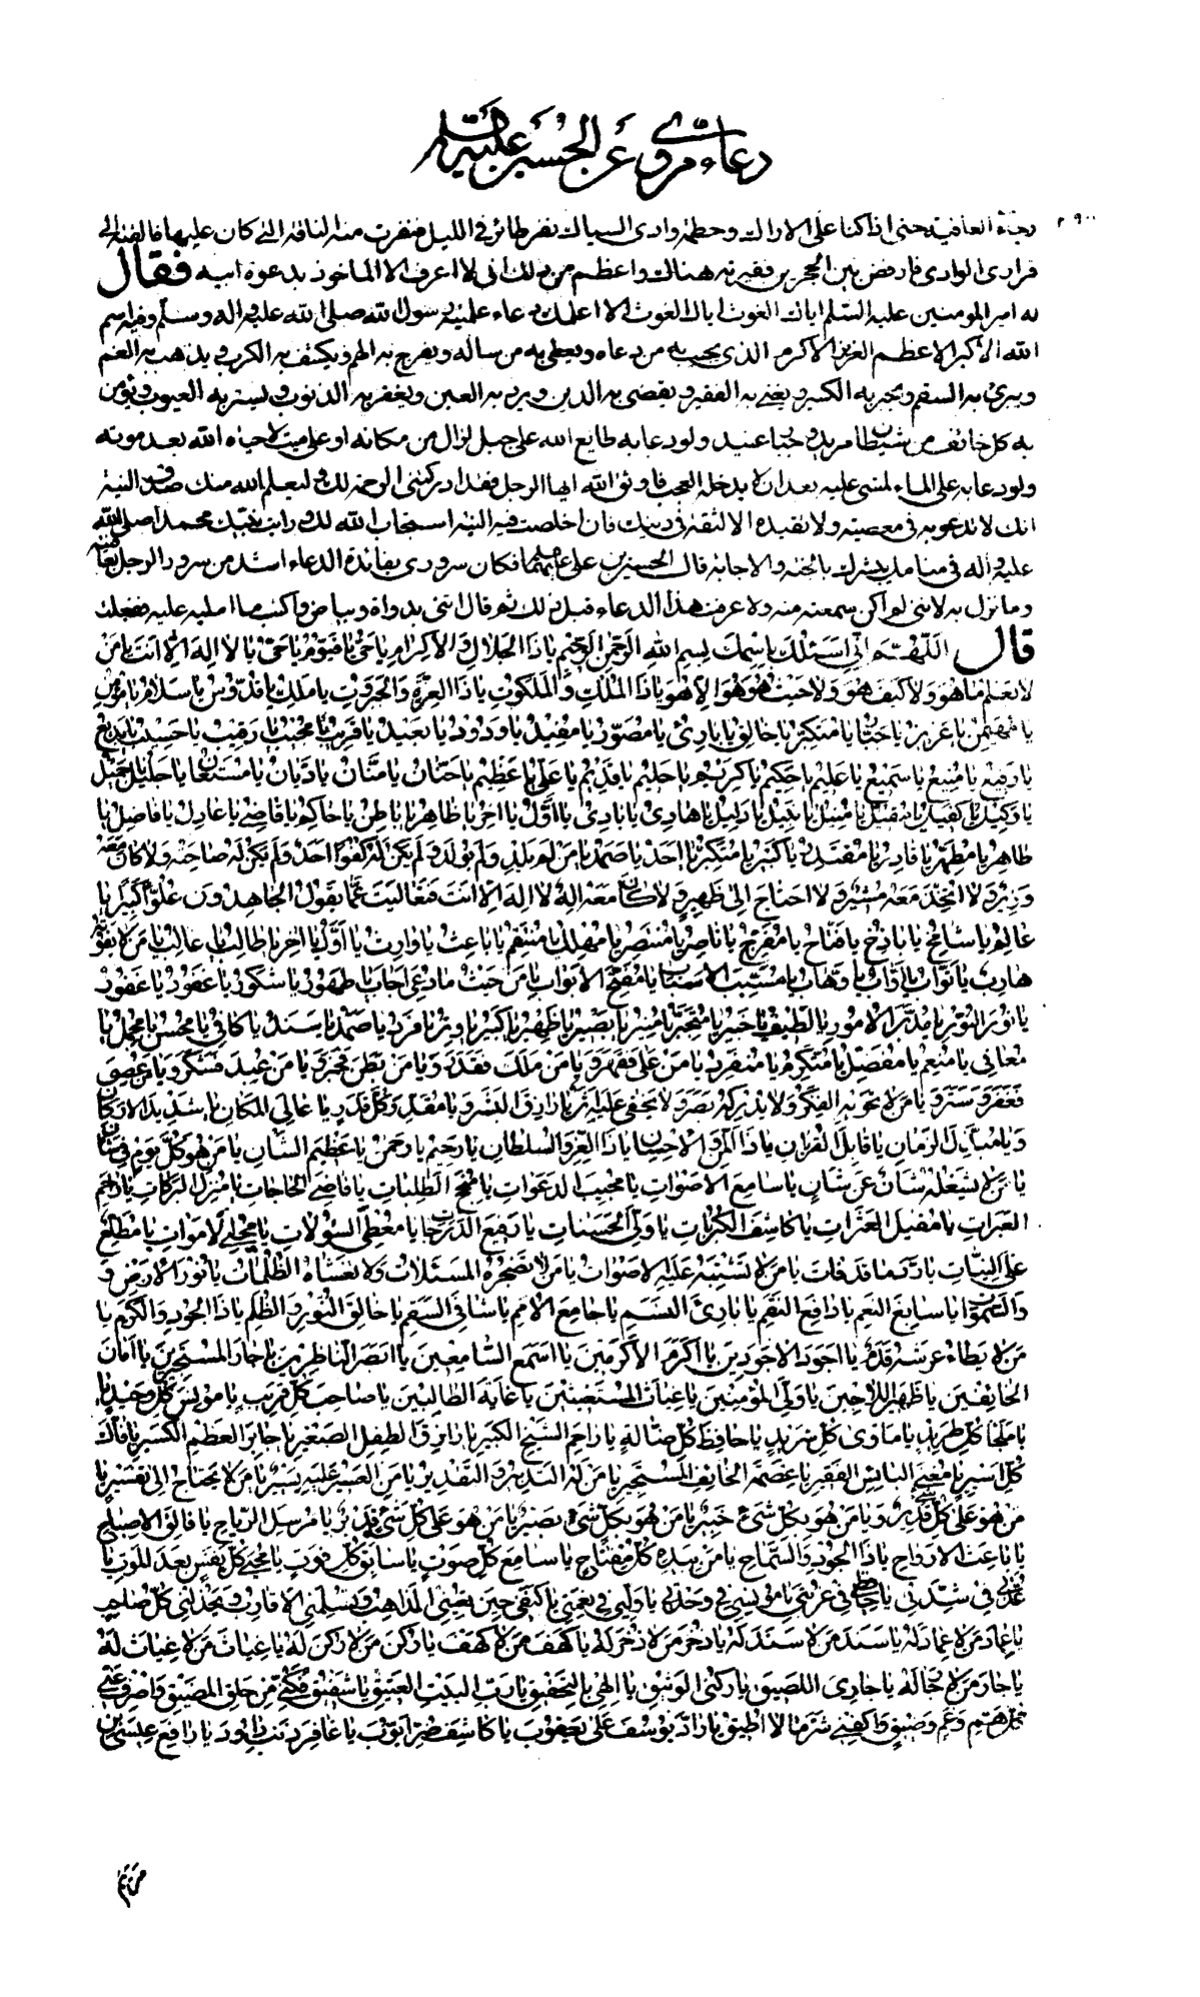 دعاء مروي عن الحسين عليه السلم
حتى اذا كنا على الاراك وحطمة وادى السياك نفر طائر في الليل فنفرت منه الناقة التي كان عليها فالقته الى
قرار الوادى فارفض بين الحجرين فقبرته هناك واعظم من ذلك انى لا اعرف الا الماخوذ بدعوة ابيه فقال
له امير المومنين عليه السلم اتاك الغوث اتاك الغوث الا اعلمك دعاء علمنيه رسول الله صلى الله عليه واله وسلم وفيه اسم
الله الاكبر الاعظم العزيز الاكرم الذى يجيب به من دعاه ويعطى به من ساله ويفرج به الهم ويكشف به الكرب ويذهب به الغم
ويبرئ به السقم ويجبر به الكسير ويغنى به الفقير ويقضى به الدين ويرد به العين ويغفر به الذنوب ويستر به العيوب ويؤمن
به كل خائف من شيطان مريد وجبار عنيد ولو دعا به طائع الله على جبل لزال من مكانه او على ميت لاحياه الله بعد موته
ولو دعا به على الماء لمشى عليه بعد ان لا يدخله العجب فاتق الله ايها الرجل فقد ادركتنى الرحمة لك وليعلم الله منك صدق النية
انك لا تدعو به في معصيته ولا تفيده الا الثقة في دينك فان اخلصت فيه النية استجاب الله لك ورايت نبيك محمدا صلى الله
عليه واله في منامك يبشرك بالجنة والاجابة قال الحسين بن على عليهما السلم فكان سرورى بفائدة الدعاء اشد من سرور الرجل بعافيته
وما نزل به لاننى لم اكن سمعته منه ولا عرفت هذا الدعاء قبل ذلك ثم قال ائتنى بدواة وبياض واكتب ما امليه عليك ففعلت
قال اللهم اني اسئلك باسمك بسم الله الرحمن الرحيم يا ذا الجلال والاكرام يا حي يا قيوم يا حي يا لا اله الا انت يا من
لا يعلم ما هو ولا كيف هو ولا حيث هو الا هو يا ذا الملك والملكوت يا ذا العزة والجبروت يا ملك يا قدوس يا سلام يا مؤمن
يا مهيمن يا عزيز يا جبار يا متكبر يا خالق يا بارئ يا مصور يا مفيد يا ودود يا بعيد يا قريب يا مجيب يا رقيب يا حسيب يا بديع
يا رفيع يا منيع يا سميع يا عليم يا حكيم يا كريم يا حليم يا قديم يا علي يا عظيم يا حنان يا منان يا ديان يا مستعان يا جليل يا جميل
يا وكيل يا كفيل يا مقيل يا منيل يا نبيل يا دليل يا هادي يا بادي يا اول يا اخر يا ظاهر يا باطن يا حاكم يا قاضي يا عادل يا فاصل يا
طاهر يا مطهر يا قادر يا مقتدر يا كبير يا متكبر يا احد يا صمد يا من لم يلد ولم يولد ولم يكن له كفوا احد ولم يكن له صاحبة ولا كان معه
وزير ولا اتخذ معه مشيرا ولا احتاج الى ظهير ولا كان معه اله لا اله الا انت فتعاليت عما يقول الجاحدون علوا كبيرا يا
عالم يا شامخ يا باذخ يا فتاح يا مفرج يا ناصر يا منتصر يا مهلك يا منتقم يا باعث يا وارث يا اول يا اخر يا طالب يا غالب يا من لا يفوته
هارب يا تواب يا اواب يا وهاب يا مسبب الاسباب يا مفتح الابواب يا من حيث ما دعي اجاب يا طهور يا شكور يا عفو يا غفور
يا نور النور يا مدبر الامور يا لطيف يا خبير يا متجبر يا منير يا بصير يا ظهير يا كبير يا وتر يا فرد يا صمد يا سند يا كافي يا محسن يا مجمل يا
معافي يا منعم يا مفضل يا متكرم يا متفرد يا من علا فقهر ويا من ملك فقدر ويا من بطن فخبر ويا من عبد فشكر ويا من عصي
فغفر وستر ويا من لا تحويه الفكر ولا يدركه بصر ولا يخفى عليه اثر يا رازق البشر ويا مقدر كل قدر يا عالي المكان يا شديد الاركان
ويا مبدل الزمان يا قابل القربان يا ذا المن والاحسان يا ذا العز والسلطان يا رحيم يا رحمن يا عظيم الشان يا من هو كل يوم في شان
يا من لا يشغله شان عن شان يا سامع الاصوات يا مجيب الدعوات يا منجح الطلبات يا قاضي الحاجات يا منزل البركات يا راحم
العبرات يا مقيل العثرات يا كاشف الكربات يا ولي الحسنات يا رفيع الدرجات يا معطي السؤلات يا محيي الاموات يا مطلع
على النيات يا راد ما قد فات يا من لا تشتبه عليه الاصوات يا من لا تضجره المسئلات ولا تغشاه الظلمات يا نور الارض و
والسموات يا سابغ النعم يا دافع النقم يا بارئ النسم يا جامع الامم يا شافي السقم يا خالق النور والظلم يا ذا الجود والكرم يا
من لا يطاء عرشه قدم يا اجود الاجودين يا اكرم الاكرمين يا اسمع السامعين يا ابصر الناظرين يا جار المستجيرين يا امان
الخايفين يا ظهر اللاجين يا ولي المؤمنين يا غياث المستغيثين يا غاية الطالبين يا صاحب كل غريب يا مونس كل وحيد يا
يا ملجا كل طريد يا ماوى كل شريد يا حافظ كل ضالة يا راحم الشيخ الكبير يا رازق الطفل الصغير يا جابر العظم الكسير يا فاك
كل اسير يا مغني البائس الفقير يا عصمة الخائف المستجير يا من له التدبير والتقدير يا من العسير عليه يسير يا من لا يحتاج الى تفسير يا
من هو على كل شئ قدير ويا من هو بكل شئ خبير يا من هو بكل شئ بصير يا من هو على كل شئ قدير يا مرسل الرياح يا فالق الاصباح
يا باعث الارواح يا ذا الجود والسماح يا من بيده كل مفتاح يا سامع كل صوت يا سابق كل فوت يا محيي كل نفس بعد الموت يا
عدتي في شدتي يا حافظي في غربتي يا مونسي في وحدتي يا وليي في نعمتي يا كنفي حين تعييني المذاهب وتسلمني الاقارب ويخذلني كل صاحب
يا عماد من لا عماد له يا سند من لا سند له يا ذخر من لا ذخر له يا كهف من لا كهف يا ركن من لا ركن له يا غياث من لا غياث له
يا جار من لا جار له يا جاري اللصيق يا ركني الوثيق يا الهي بالتحقيق يا رب البيت العتيق يا شفيق فكني من حلق المضيق واصرف عني
كل هم وغم وضيق واكفني شر ما لا اطيق يا راد يوسف على يعقوب يا كاشف ضر ايوب يا غافر ذنب داود يا رافع عيسى بن
مريم